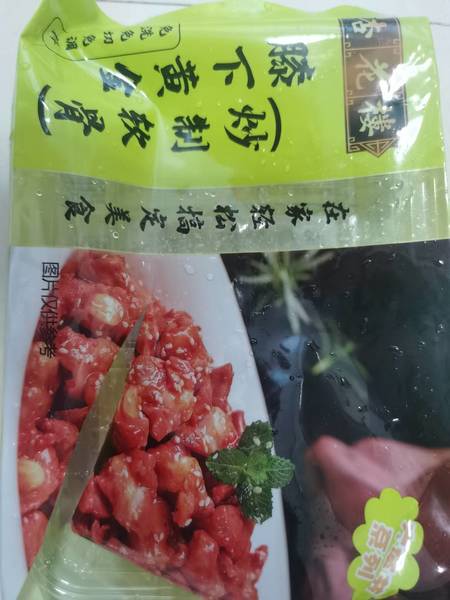 杏花楼
膝下黄金
(炒制软骨)
免洗免切免调
在家轻松搞定美食
图片仅供参考
系列